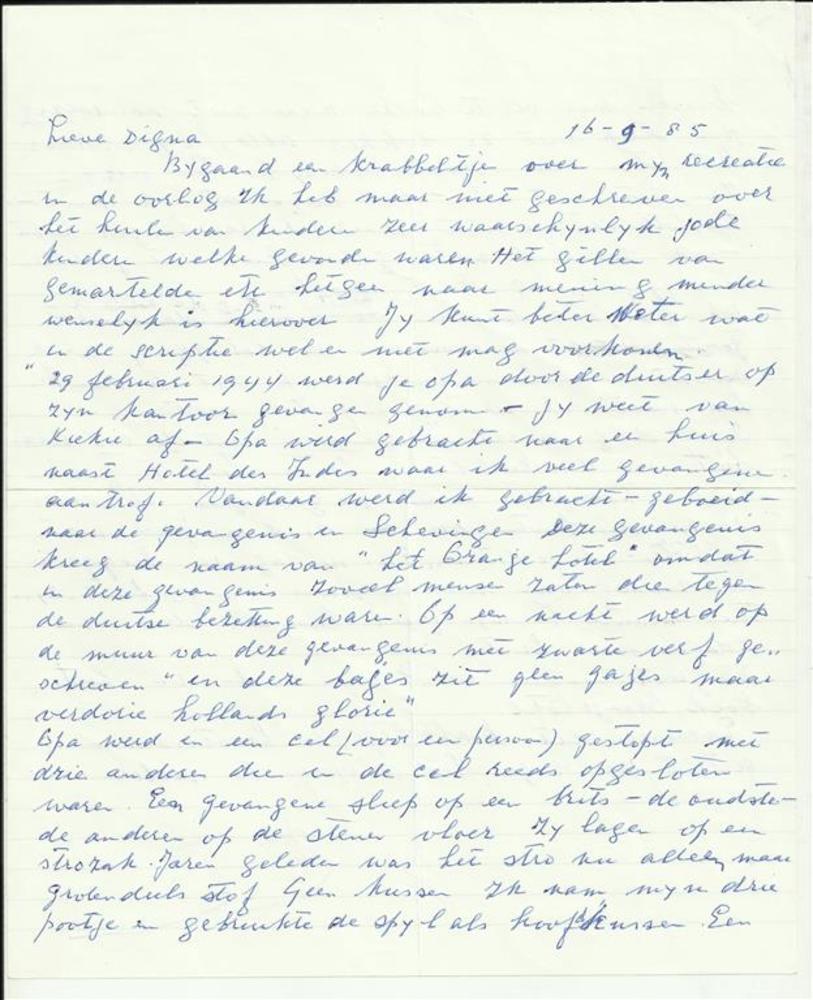 Lieve Digna 16-9-85
Bygaand een krabbeltje over myn recreatie
in de oorlog Ik heb maar niet geschreven over
het huilen van kinderen zeer waarschynlyk jode
kinderen welke gevonden waren Het gillen van
gemartelde etc hetgeen naar mening minder
wenselyk is hierover Jy kunt beter weten wat
in de scriptie wel en niet mag voorkomen
"29 februari 1944 werd je opa door de duitser op
zyn kantoor gevangen genomen - Jy weet van
af - Opa werd gebracht naar een huis
naast Hotel des Indes waar ik veel gevangene
aantrof. Vandaar werd ik gebracht - geboeid -
naar de gevangenis in Schevingen Deze gevangenis
kreeg de naam van "het Oranje hotel" omdat
in deze gevangenis zoveel mensen zaten die tegen
de duitse bezetting waren. Op een nacht werd op
de muur van deze gevangenis met zwarte verf ge..
schreven "in deze bajes zit geen gajes maar
verdorie hollands glorie"
Opa werd in een cel (voor een persoon) gestopt met
drie anderen die in de cel reeds opgesloten
waren. Een gevangene sliep op een brits - de oudste -
de anderen op de stenen vloer Zy lagen op een
strozak. Jaren geleden was het stro nu alleen maar
grotendeels stof Geen kussen Ik nam myn drie
pootje en gebruikte de spyl als hoofdkussen. Een